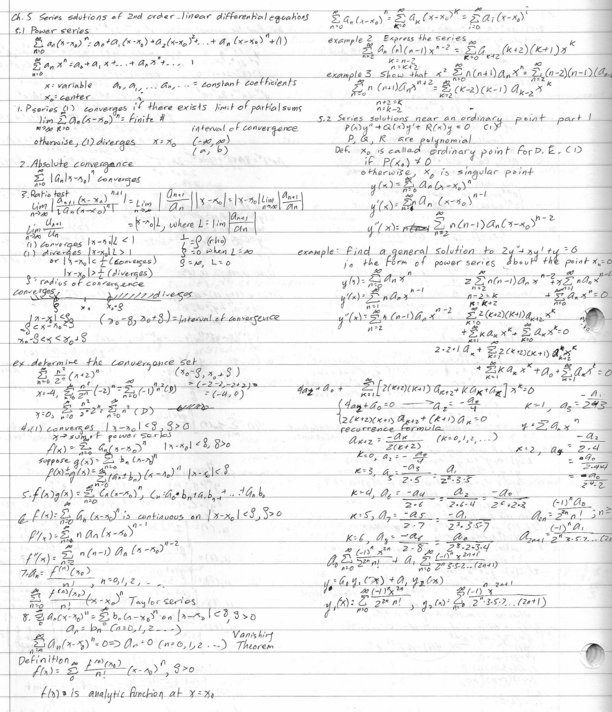 Ch. 5 Series solutions of 2nd order linear differential equations
5.1 Power series
∑_{n=0}^∞ a_n(x-x_0)^n = a_0 + a_1(x-x_0) + a_2(x-x_0)^2 + ... + a_n(x-x_0)^n + (1)
∑_{n=0}^∞ a_n x^n = a_0 + a_1 x + ... + a_n x^n + ...
x: variable a_0, a_1, ... a_n, ... = constant coefficients
x_0: center
1. P series (1) converges if there exists limit of partial sums
lim_{m→∞} ∑_{n=0}^m a_n(x-x_0)^n = finite #
interval of convergence
otherwise, (1) diverges x=x_0 (-∞, ∞)
(a, b)
2. Absolute convergence
∑_{n=0}^∞ |a_n||x-x_0|^n converges
3. Ratio test
lim_{n→∞} |a_{n+1}(x-x_0)^{n+1} / a_n(x-x_0)^n| = lim_{n→∞} |a_{n+1}/a_n| |x-x_0| = |x-x_0| lim_{n→∞} |a_{n+1}/a_n|
lim_{n→∞} u_{n+1}/u_n = |x-x_0| L, where L = lim |a_{n+1}/a_n|
(1) converges |x-x_0| L < 1 1/L = ρ (rho)
(1) diverges |x-x_0| L > 1 ρ = 0 when L = ∞
or |x-x_0| < 1/L (converges) ρ = ∞, L = 0
|x-x_0| > 1/L (diverges)
ρ - radius of convergence
converges diverges
|x-x_0| < ρ (x_0-ρ, x_0+ρ) = interval of convergence
-ρ < x-x_0 < ρ
x_0-ρ < x < x_0+ρ
ex. determine the convergence set
∑_{n=0}^∞ n^2/2^n (x+2)^n (x_0-ρ, x_0+ρ)
= (-2-2, -2+2)
= (-4, 0)
x=-4, ∑_{n=0}^∞ n^2/2^n (-2)^n = ∑_{n=0}^∞ (-1)^n n^2 (D)
x=0, ∑_{n=0}^∞ n^2/2^n 2^n = ∑ n^2 (D)
4. (1) converges |x-x_0| < ρ, ρ>0
x → sum of power series
f(x) = ∑_{n=0}^∞ a_n(x-x_0)^n |x-x_0| < ρ, ρ>0
suppose g(x) = ∑_{n=0}^∞ b_n(x-x_0)^n
f(x)+g(x) = ∑_{n=0}^∞ (a_n+b_n)(x-x_0)^n |x-x_0| < ρ
5. f(x)g(x) = ∑_{n=0}^∞ c_n(x-x_0)^n, c_n = a_0 b_n + a_1 b_{n-1} + ... + a_n b_0
6. f(x) = ∑_{n=0}^∞ a_n(x-x_0)^n is continuous on |x-x_0| < ρ, ρ>0
f'(x) = ∑ n a_n(x-x_0)^{n-1}
f''(x) = ∑ n(n-1) a_n(x-x_0)^{n-2}
7. a_n = f^{(n)}(x_0)/n!, n=0,1,2,...
∑_{n=0}^∞ f^{(n)}(x_0)/n! (x-x_0)^n Taylor series
8. ∑_{n=0}^∞ a_n(x-x_0)^n = ∑_{n=0}^∞ b_n(x-x_0)^n on |x-x_0| < ρ, ρ>0
a_n = b_n (n=0,1,2...)
∑_{n=0}^∞ a_n(x-x_0)^n = 0 => a_n = 0 (n=0,1,2...) Vanishing Theorem
Definition
f(x) = ∑_0^∞ f^{(n)}(x_0)/n! (x-x_0)^n, ρ>0
f(x) is analytic function at x=x_0
∑_{n=0}^∞ a_n(x-x_0)^n = ∑_{k=0}^∞ a_k(x-x_0)^k = ∑_{i=0}^∞ a_i(x-x_0)^i
example 2 Express the series
∑_{n=2}^∞ a_n(n)(n-1)x^{n-2} = ∑_{k=0}^∞ a_{k+2}(k+2)(k+1)x^k
k=n-2
n=k+2
example 3 Show that x^2 ∑_{n=0}^∞ n(n+1)a_n x^n = ∑_{n=2}^∞ (n-2)(n-1)(a_{n-
∑_{n=0}^∞ n(n+1)a_n x^{n+2} = ∑_{k=2}^∞ (k-2)(k-1)a_{k-2} x^k
n+2=k
n=k-2
5.2 Series solutions near an ordinary point part 1
P(x)y''+Q(x)y'+R(x)y=0 (1)
P, Q, R are polynomial
Def. x_0 is called ordinary point for D.E. (1)
if P(x_0) ≠ 0
otherwise, x_0 is singular point
y(x) = ∑_{n=0}^∞ a_n(x-x_0)^n
y'(x) = ∑ n a_n(x-x_0)^{n-1}
y''(x) = ∑_{n=2}^∞ n(n-1)a_n(x-x_0)^{n-2}
example: find a general solution to 2y''+xy'+y=0
in the form of power series about the point x_0=0
y(x) = ∑_{n=0}^∞ a_n x^n 2∑_{n=2}^∞ n(n-1)a_n x^{n-2} + x∑_{n=1}^∞ n a_n x^{n-1}
y'(x) = ∑_{n=1}^∞ n a_n x^{n-1} n-2=k + ∑_{n=0}^∞ a_n x^n = 0
n=k+2
y''(x) = ∑_{n=2}^∞ n(n-1)a_n x^{n-2} ∑_{k=0}^∞ 2(k+2)(k+1)a_{k+2} x^k
+ ∑_{k=1}^∞ k a_k x^k + ∑_{k=0}^∞ a_k x^k = 0
2·2·1 a_2 + ∑_{k=1}^∞ 2(k+2)(k+1) a_{k+2} x^k
+ ∑_{k=1}^∞ k a_k x^k + a_0 + ∑_{k=1}^∞ a_k x^k = 0
4a_2 + a_0 + ∑_{k=1}^∞ [2(k+2)(k+1)a_{k+2} + k a_k + a_k] x^k = 0
{4a_2+a_0=0 → a_2 = -a_0/4 k=1, a_3 = -a_1/2·3
{2(k+2)(k+1)a_{k+2} + (k+1)a_k = 0
recurrence formula y = ∑ a_n x^n
a_{k+2} = -a_k/2(k+2) (k=0,1,2,...)
k=0, a_2 = -a_0/4 k=2, a_4 = -a_2/2·4
k=3, a_5 = -a_3/2·5 = a_1/2^2·3·5
k=4, a_6 = -a_4/2·6
k=5, a_7 = -a_5/2·7 = -a_1/2^3·3·5·7
k=6, a_8 = -a_6/2·8
a_{2n} = (-1)^n a_0/2^{2n} n!
a_{2n+1} = (-1)^n a_1/2^n 3·5·7...(2n
a_0 ∑_{n=0}^∞ (-1)^n x^{2n}/2^{2n} n! + a_1 ∑ (-1)^n x^{2n+1}/2^n 3·5·7...(2n+1)
y = a_0 y_1(x) + a_1 y_2(x)
y_1(x) = ∑_{n=0}^∞ (-1)^n x^{2n}/2^{2n} n!, y_2(x) = ∑ (-1)^n x^{2n+1}/2^n·3·5·7...(2n+1)